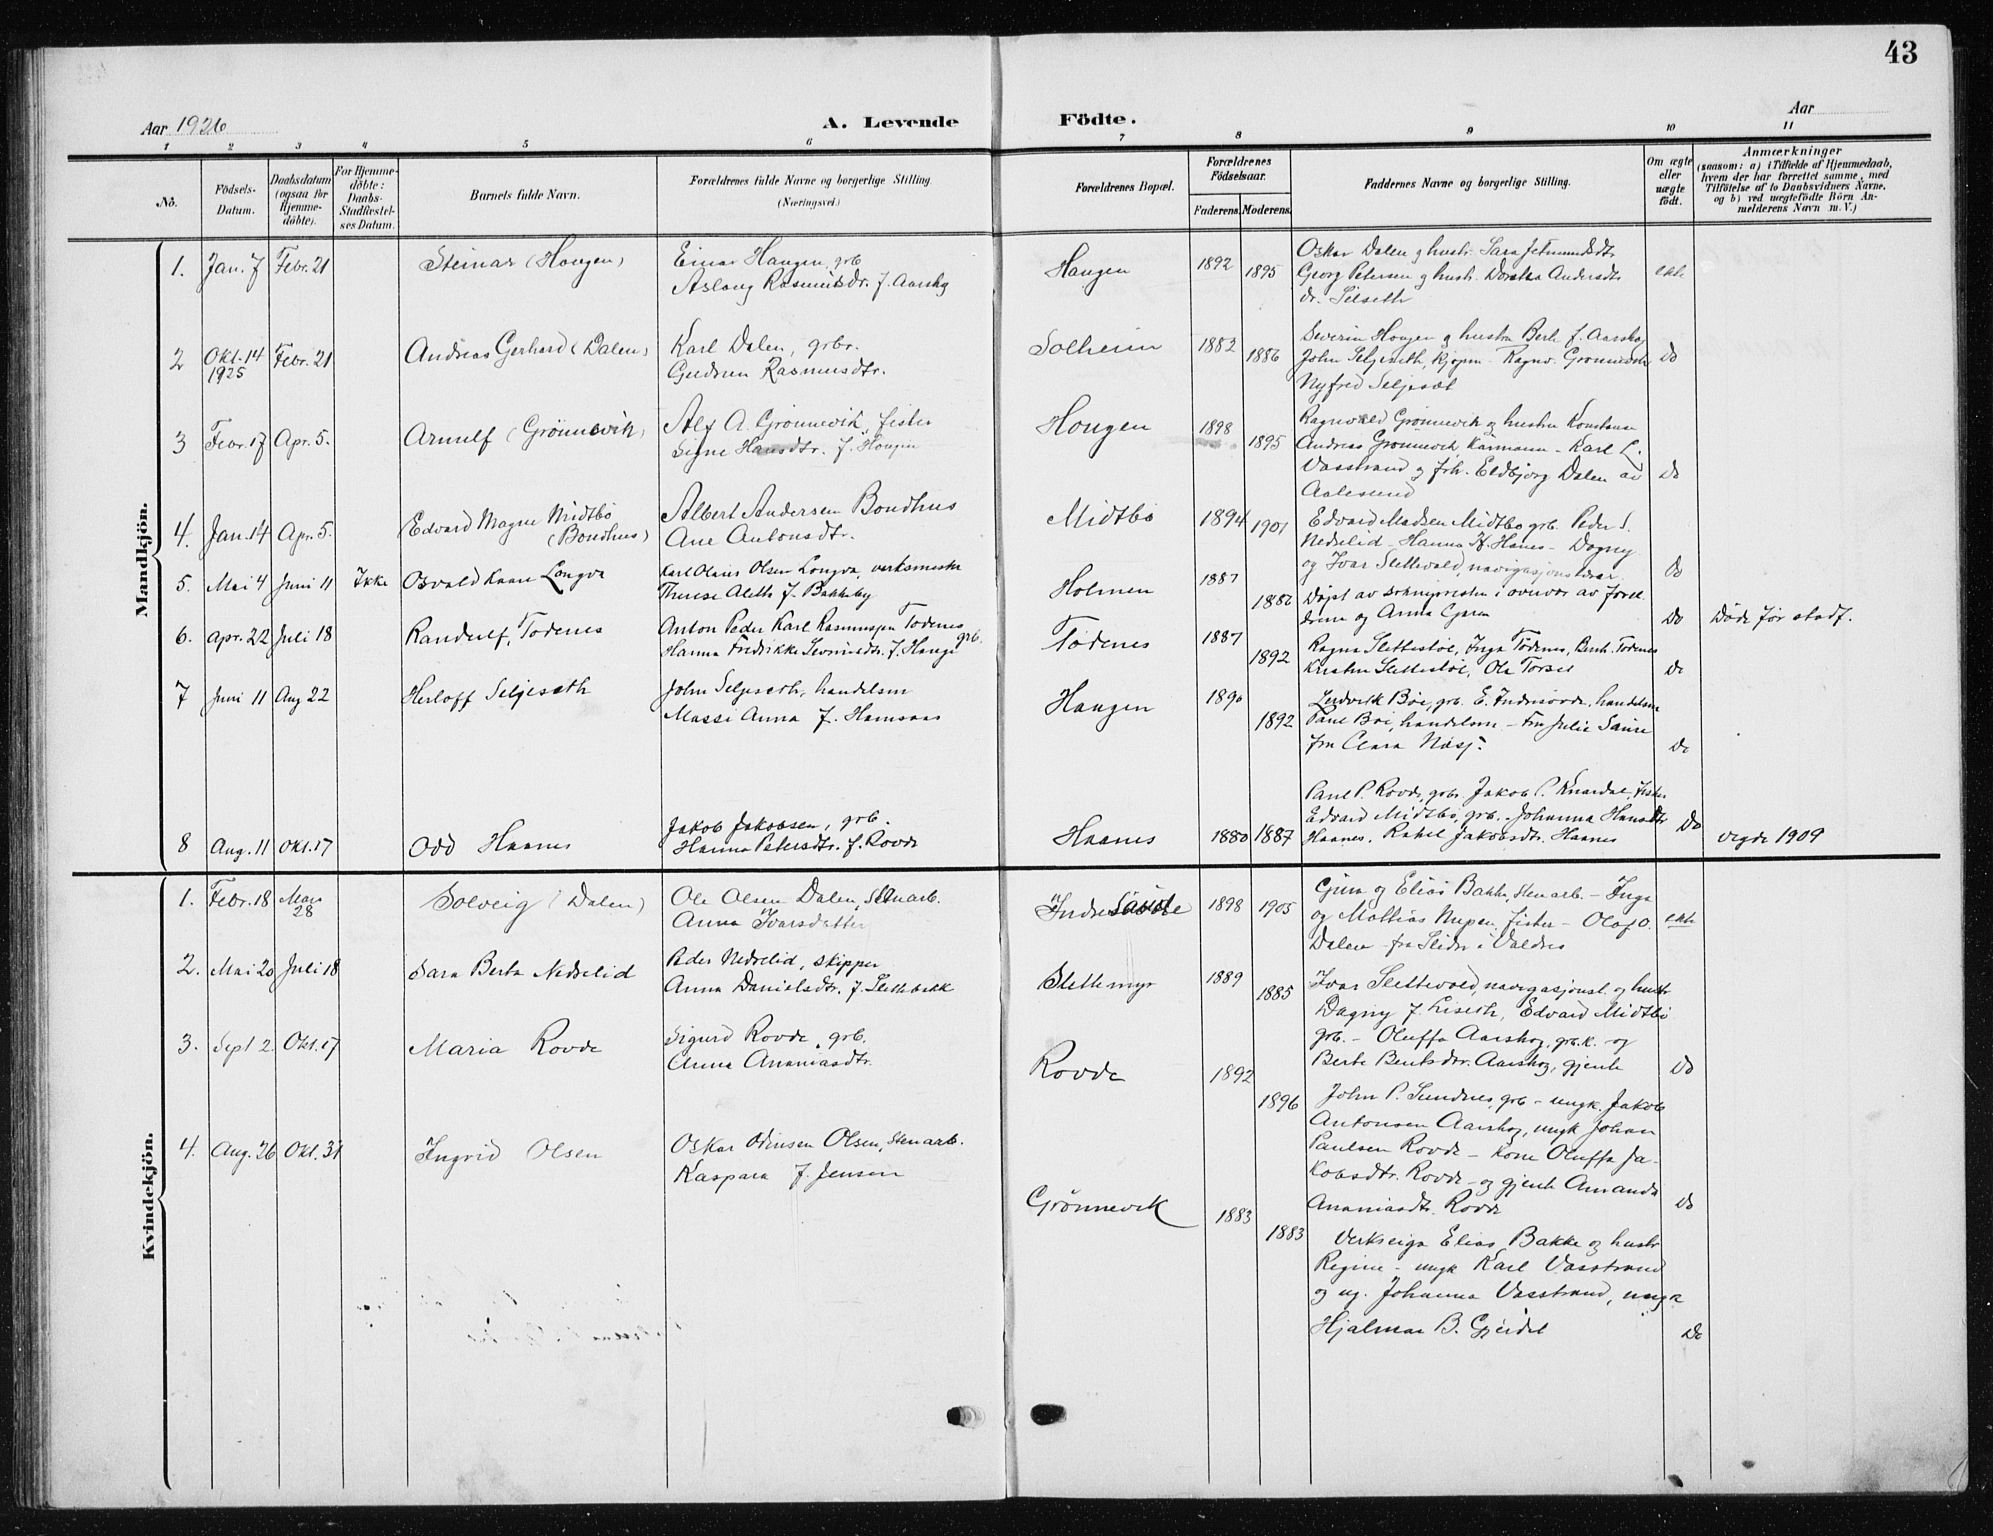 43
Aar 1926
A. Levende Födte.
Aar
1 2 3 4 5 6 7 8 9 10 11
No.
Födsels-Datum.
Daabsdatum (ogsaa for Hjemme-döbte).
For Hjemme-döbte: Daabs-Stadfæstel-ses Datum.
Barnets fulde Navn.
Forældrenes fulde Navne og borgerlige Stilling
(Næringsvei.)
Forældrenes Bopæl.
Forældrenes Födselsaar.
Faderens. Moderens.
Faddernes Navne og borgerlige Stilling.
Om ægte eller uægte födt.
Anmærkninger
(saasom: a) i Tilfælde af Hjemmedaab,
hvem der har forrettet samme, med
Tilföielse af to Daabsvidners Navne.
og b) ved uægtefödte Börn An-
melderens Navn m. V.)
Mandkjön.
1. Jan. 7 Febr. 21 Steinar (Hougen) Einar Haugen, grb
Aslaug Rasmusdr. f. Aarskog
Haugen 1892 1895
Oskar Dalen g hustr. Sara
Georg Petersen g hustr. Dorthea Andersdtr
dr. Selseth
ekte
2 Okt. 14 1925 Febr. 21 Andreas Gerhard (Dalen) Karl Dalen, grbr.
Gudrun Rasmusdtr.
Solheim 1882 1886
Severin Hougen g hustru Berte f. Aarskog
John Seljeseth, kjøpm - Ragnv. Grønnevik
Nyfred Seljeset
Do
3 Febr. 17 Apr. 5. Arnulf (Grönnevik) Alf A. Grönnevik, fisker
Signe Hansdtr. f. Hougen
Hougen 1898 1895
Ragnvald Grønnevik og hustru Konstanse
Andreas Grønnevik, - Karl L.
Vasstrand og frk. Eldbjørg Dalen av
Aalesund
Do
4. Jan. 14 Apr. 5 Edvard Magne Midtbö
(Bondhus)
Albert Andersen Bondhus
Ane Antonsdtr.
Midtbö 1894 1901
Edvard Madsen Midtbø grb. Peder S.
Nedrelid - Hanna H. Hanes - Dagny
og Ivar Slettevold, navigasjonslærer
Do
5. Mai 4 Juni 11 Ikke Osvald Kaare Longva Karl Olaus Olsen Longva, verksmester
Therese Aleth f. Bakkeby
Holmen 1887 1886
Døpt av soknepresten i overvær av forel
drene og Anna Gjæren
Do Døde før stadf.
6. Apr. 22 Juli 18 Randulf, Tödenes Anton Peder Karl Rasmussen Tödenes grb.
Hanna Fredrikke Severinsdtr. f. Hauge
Tødenes 1887 1892
Ragna Slettestøl, Inga Tödenes, Bernt. Tödenes
Kristen Slettestøl, Ole Torset
Do
7 Juni 11 Aug 22 Herloff Seljeseth John Seljeseth, handelsm
Massi Anna f. Hamsaas
Haugen 1890 1892
Ludvik Böe, grb. E. Indresövde, handelsm
Paul Böe, handelsm - Fru Julie Saure
fru Clara
Do
8 Aug. 11 Okt. 17 Odd Haanes Jakob Jakobsen, grb.
Hanna Petersdtr. f. Rovde
Haanes 1880 1887
Paul P. Rovde, grbr Jakob P. Knardal, fisker
Edvard Midtbö, grb. - Johanna Hansdtr
Haanes. Rakel Jakobsdtr. Haanes
Do vegde 1909
Kvindekjön.
1. Febr. 18 Mars 28 Solveig (Dalen) Ole Olsen Dalen, Stenarb.
Anna Ivarsdatter
Indresövde 1898 1905
og Elias Bakke, stenarb - Inga
og Mathias Nupen, fisker - Olaf O.
Dalen - fra Slidre i Valdres
ekte
2. Mai 20 Juli 18 Sara Berta Nedrelid Peder Nedrelid, skipper
Anna Danielsdtr. f. Slettebakk
Slettemyr 1889 1885
Ivar Slettevold, navigasjonsl. og hustr
Dagny f. Liseth, Edvard Midtbö
grb. - Oluffa Aarskog, grb.k. og
Berte Bentsdtr. Aarskog, gjente
Do
3. Sept 2. Okt. 17 Maria Rovde Sigurd Rovde, grb.
Anna Ananiasdtr.
Rovde 1892 1896
John P. Sundnes, grb - ungk. Jakob
Antonsen Aarskog, ungk Johan
Paulsen Rovde - Kone Oluffa Ja-
kobsdtr. Rovde - og gjente Amanda
Ananiasdtr. Rovde
Do
4. Aug. 26 Okt. 31 Ingrid Olsen Oskar Odinsen Olsen, Stenarb.
Kaspara f. Jensen
Grønnevik 1883 1883
Verkseiga Elias Bakke og hustr
Regine - ungk Karl Vasstrand
og ug. Johanna Vasstrand, ungk
Hjalmar B. Gjerdet
Do